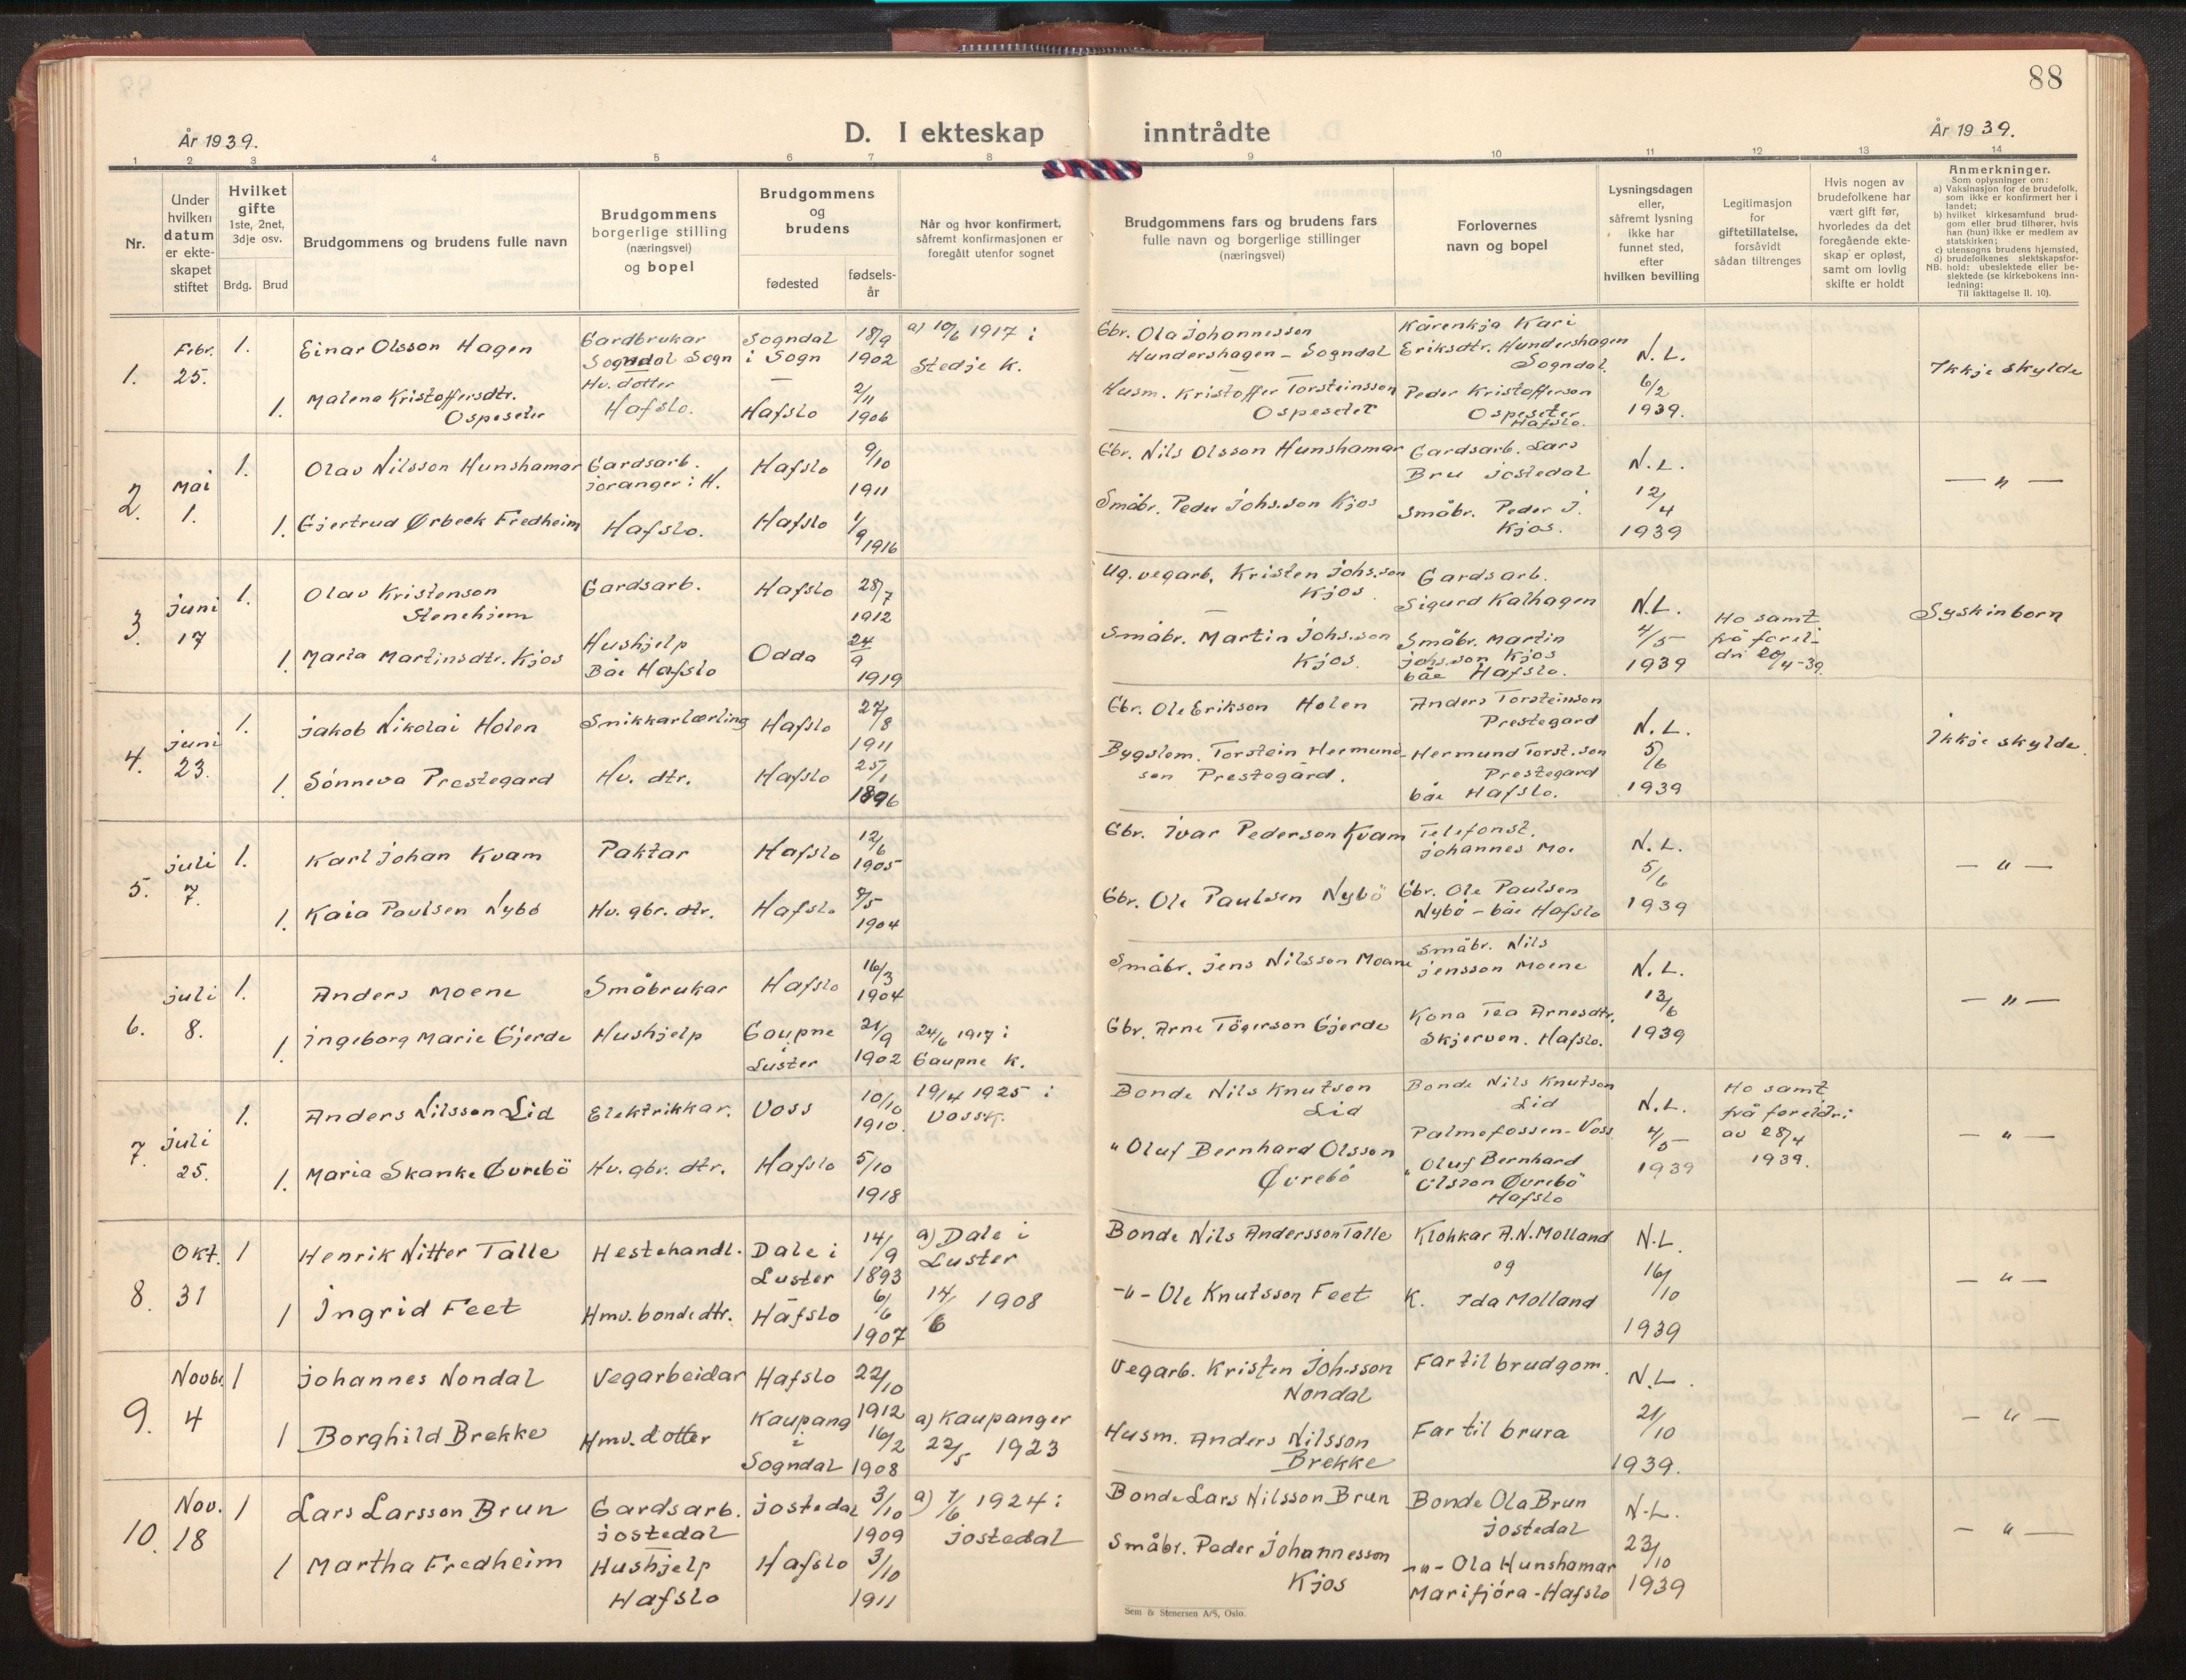 88
År 1939.
D. I ekteskap inntrådte
År 1939.
1 2 3 4 5 6 7 8 9 10 11 12 13 14
Nr.
Under
hvilken
datum
er ekte-
skapet
stiftet
Hvilket
gifte
1ste, 2net,
3dje osv.
Brdg. Brud
Brudgommens og brudens fulle navn
Brudgommens
borgerlige stilling
(næringsvei)
og bopel
Brudgommens
og
brudens
fødested
fødsels-
år
Når og hvor konfirmert,
såfremt konfirmasjonen er
foregått utenfor sognet
Brudgommens fars og brudens fars
fulle navn og borgerlige stillinger
(næringsvei)
Forlovernes
navn og bopel
Lysningsdagen
eller,
såfremt lysning
ikke har
funnet sted,
efter
hvilken bevilling
Legitimasjon
for
giftetillatelse,
forsåvidt
sådan tiltrenges
Hvis nogen av
brudefolkene har
vært gift før,
hvorledes da det
foregående ekte-
skap er opløst,
samt om lovlig
skifte er holdt
Anmerkninger.
Som oplysninger om:
a) Vaksinasjon for de brudefolk,
som ikke er konfirmert her i
landet;
b) hvilket kirkesamfund brud-
gom eller brud tilhører, hvis
han (hun) ikke er medlem av
statskirken;
c) utensogns brudens hjemsted,
d) brudefolkenes slektskapsfor-
NB. hold: ubeslektede eller be-
slektede (se kirkebokens inn-
ledning:
Til iakttagelse II. 10).
1.
Febr.
25.
1.
Einar Olsson Hagen
Gardbrukar
Sogndal Sogn
Sogndal
i Sogn
18/9
1902
a) 10/6 1917 i
Stedje K.
Gbr. Ola Johannesson
Hundershagen – Sogndal
Kårenkja Kari
Eriksdtr. Hundershagen
Sogndal.
N. L.
6/2
1939.
Ikkje skylde
1.
Malena Kristoffersdtr.
Ospeseter
Hv. dotter
Hafslo.
Hafslo
2/11
1906
Husm. Kristoffer Torsteinsson
Ospeseter
Peder Kristofferson
Ospeseter
Hafslo.
2.
Mai
1.
1.
Olav Nilsson Hunshamar
Gardsarb.
Joranger i H.
Hafslo
9/10
1911
Gbr. Nils Olsson Hunshamar
Gardsarb. Lars
Bru Jostedal
N. L.
12/4
1939
— " —
1.
Gjertrud Ørbeck Fredheim
Hafslo.
Hafslo
1/9 1916
Småbr. Peder Johs.son Kjos
Småbr. Peder J.
Kjos.
3.
Juni
17
1.
Olav Kristenson
Stenehjem
Gardsarb.
Hafslo
28/7
1912
Ug. vegarb. Kristen Johs.son
Kjos.
Gardsarb.
Sigurd Kalhagen
N.L.
4/5
1939
Ho samt.
frå forel-
dri 20/4-39.
Syskinborn
1.
Marta Martinsdtr. Kjos
Hushjelp
Båe Hafslo
Odda
24/9
1919
Småbr. Martin Johs.son
Kjos.
Småbr. Martin
Johs.son Kjos
båe Hafslo.
4.
Juni
23.
1.
Jakob Nikolai Holen
Snikkarlærling
Hafslo
27/8
1911
Gbr. Ole Erikson Holen
Anders Torsteinson
Prestegard
N. L.
5/6
1939
Ikkje skylde.
1.
Sønneva Prestegard
Hv. dtr.
Hafslo
25/1
1896
Bygslem. Torstein Hermund-
son Prestegård.
Hermund Torst.son
Prestegard
båe Hafslo.
5.
Juli
7.
1.
Karl Johan Kvam
Paktar
Hafslo
12/6
1905
Gbr. Ivar Pederson Kvam
Telefonst.
Johannes Moe
N. L.
5/6
1939
— " —
1.
Kaia Paulsen Nybö
Hv. gbr. dtr.
Hafslo
7/5
1904
Gbr. Ole Paulsen Nybö
Gbr. Ole Paulsen
Nybö – båe Hafslo
6.
Juli
8.
1.
Anders Moene
Småbrukar
Hafslo
16/3
1904
Småbr. Jens Nilsson Moane
Småbr. Nils
Jensson Moene
N. L.
13/6
1939
— " —
1.
Ingeborg Marie Gjerde
Hushjelp
Gaupne
i
Luster
21/9
1902
24/6 1917 i
Gaupne K.
Gbr. Arne Tögerson Gjerde
Kona Tea Arnesdtr.
Skjerven. Hafslo.
7.
Juli
25.
1.
Anders Nilsson Lid
Elektrikkar.
Voss
10/10
1910.
19/4 1925 i
Voss K.
Bonde Nils Knutson
Lid
Bonde Nils Knutson
Lid
Palmefossen-Voss
N. L.
4/5
1939
Ho samt.
frå foreldri
av 28/4
1939.
— " —
1.
Maria Skanke Øvrebö
Hv. gbr. dtr.
Hafslo
5/10
1918
" Oluf Bernhard Olsson
Øvrebö
" Oluf Bernhard
Olsson Øvrebö
Hafslo
8.
Okt.
31
1
Henrik Nitter Talle
Hestehandl.
Dale i
Luster
14/9
1893
a) Dale i
Luster
14/6 1908
Bonde Nils Andersson Talle
Klokkar A.N. Molland
og
N.L.
16/10
1939
— " —
1
Ingrid Feet
Hmv. bondedtr.
Hafslo
6/6
1907
-"- Ole Knutsson Feet
K. Ida Molland
9.
Novbr.
4
1
Johannes Nondal
Vegarbeidar
Hafslo
22/10
1912
Vegarb. Kristen Johsson
Nondal
Far til brudgom.
N.L.
21/10
1939.
— " —
1
Borghild Brekke
Hmv. dotter
Kaupang
i
Sogndal
16/2
1908
a) Kaupanger
22/5 1923
Husm. Anders Nilsson
Brekke
Far til brura
10.
Nov.
18
1
Lars Larsson Brun
Gardsarb.
Jostedal
Jostedal
3/10
1909
a) 7/6 1924 i
Jostedal
Bonde Lars Nilsson Brun
Bonde Ola Brun
Jostedal
N.L.
23/10
1939
— " —
1
Martha Fredheim
Hushjelp
Hafslo
Hafslo
3/10
1911
Småbr. Peder Johannesson
Kjos
-"- Ola Hunshamar
Marifjøra - Hafslo
Sem & Stenersen A/S, Oslo.